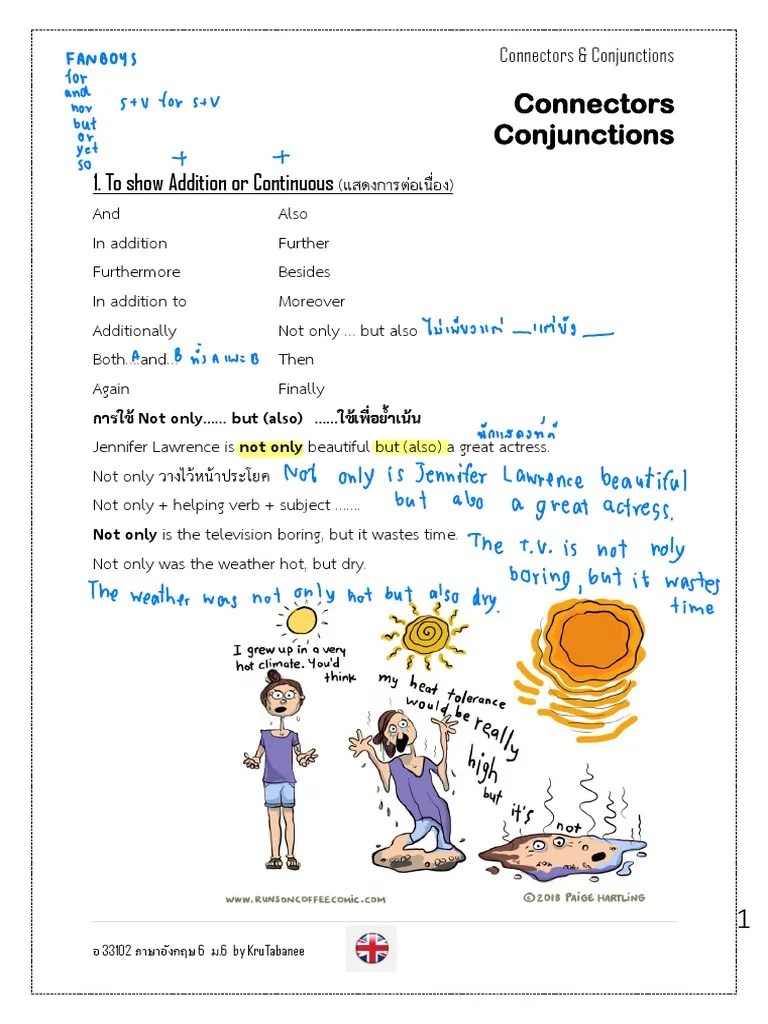 Connectors & Conjunctions
FANBOYS
for
and
nor
but
or
yet
so
S+V for S+V
+ +
Connectors
Conjunctions
1. To show Addition or Continuous (แสดงการต่อเนื่อง)
And Also
In addition Further
Furthermore Besides
In addition to Moreover
Additionally Not only ... but also ไม่เพียงแต่ __ แต่ยัง __
Both...A.and...B ทั้ง A และ B Then
Again Finally
การใช้ Not only...... but (also) ......ใช้เพื่อย้ำเน้น
นักแสดงที่ดี
Jennifer Lawrence is not only beautiful but (also) a great actress.
Not only วางไว้หน้าประโยค Not only is Jennifer Lawrence beautiful
but also a great actress.
Not only + helping verb + subject .......
Not only is the television boring, but it wastes time. The T.V. is not noly
boring, but it wastes
time
Not only was the weather hot, but dry.
The weather was not only hot but also dry.
I grew up in a very
hot climate. You'd
think
my heat tolerance
would be really
high
but it's
not
www.RUNSONCOFFEECOMIC.COM ©2018 PAIGE HARTLING
1
อ 33102 ภาษาอังกฤษ 6 ม.6 by KruTabanee